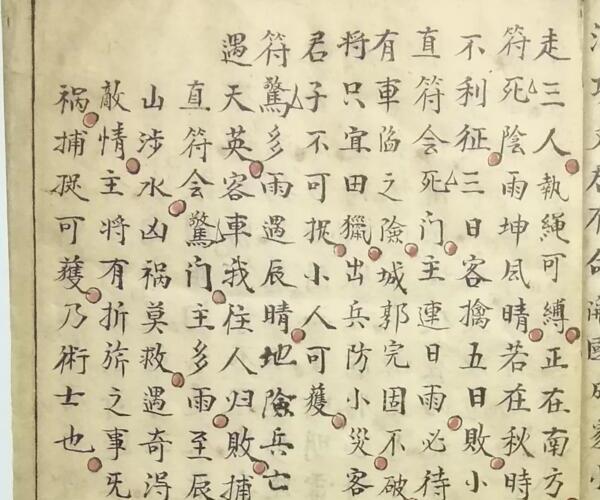 走三人執繩可縛正在南方
符死陰雨坤風晴若在秋時
不利征三日客擒五日敗小
直符会死门主連日雨必待
有車陷之險城郭完固不破
将只宜田獵出兵防小災客
君子不可捉小人可獲
符驚多雨遇辰晴地險兵亡
遇天英客車我往人归敗捕
直符会驚门主多雨至辰
山涉水凶禍莫救遇奇淂
敵情主将有折旂之事旡
禍捕捉可獲乃術士也